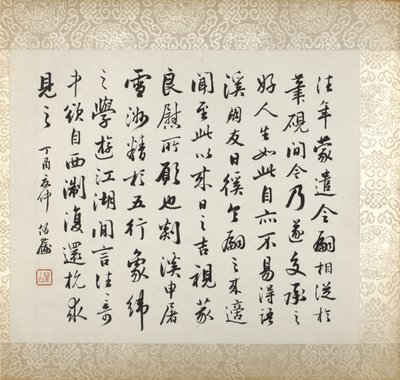 往年蒙遣令嗣相從於
筆硯間今乃遂交承之
好人生如此自亦不易得語
溪朋友日徯令嗣之來適
聞至此以來日之吉視篆
良慰所願也剡溪申屠
雪精於五行象緯
之學遊江湖間言往奇
中欲自西淛復還杭求
見之
丁酉夏仲